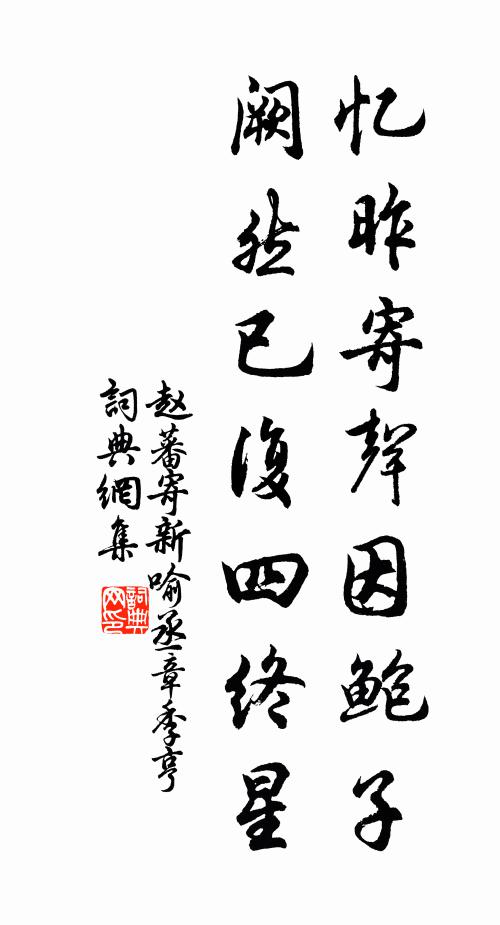 忆昨寄聲因鮑子
阙然已復四终星
赵蕃寄新喻丞章季亨
詞典網集
詞典网印